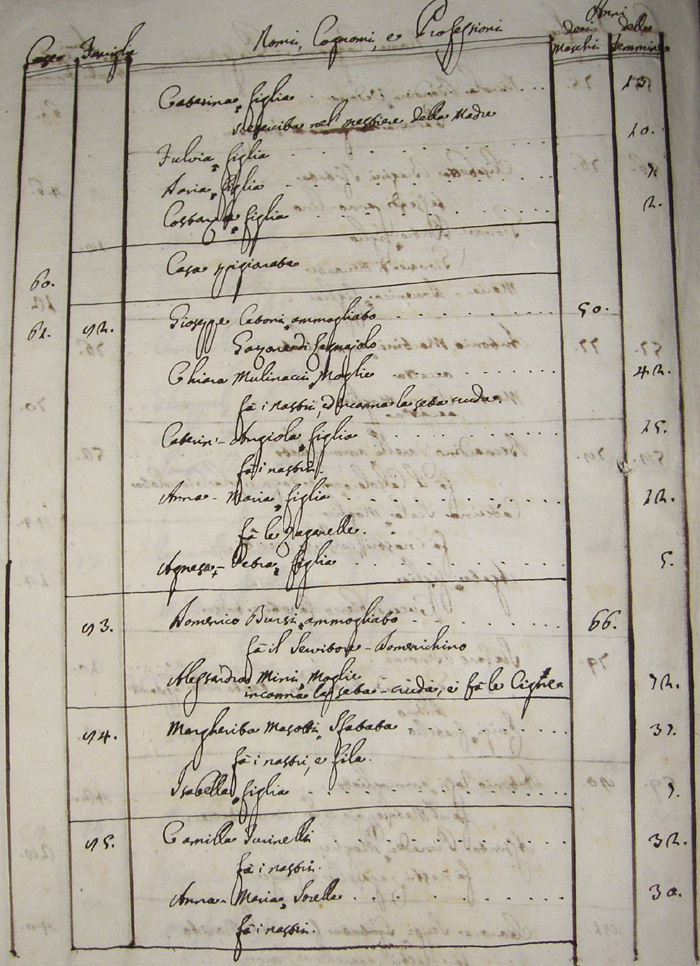 Case Famiglie Nomi, Cognomi, e Professioni Anni
degi Maschi delle Femmine
Caterina figlia 15.
nel mestiere della Madre
Fulvia figlia 10.
Maria figlia
Costanza figlia 2.
60. Casa spigionata
61. 92. Giuseppe Catoni ammogliato 50.
Garzone di Fornajolo
Chiara Mulinacci Moglie 42.
fà i nastri, ed incanna la seta cruda.
Caterin'-Angiola figlia 15.
fà i nastri.
Anna-Maria figlia 12.
fà le
Agnesa-Petra figlia 5.
93. Domenico Bursi ammogliato 66.
fà il Servitore-Domenichino
Alessandra Mini Moglie 72.
incanna la seta-cruda, e fà le
94. Margherita Masotti
fà i nastri, e fila.
Isabella figlia
95. Camilla 32.
fà i nastri.
Anna-Maria Sorella 30.
fà i nastri.